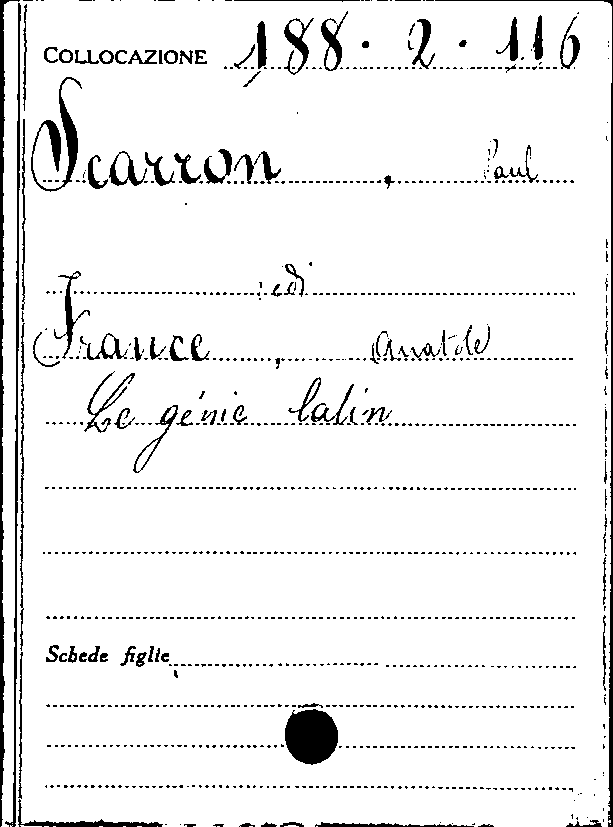 COLLOCAZIONE 188. 2. 116
Scarron, Paul
: edi
France, Anatole
Le génie latin
Schede figlie